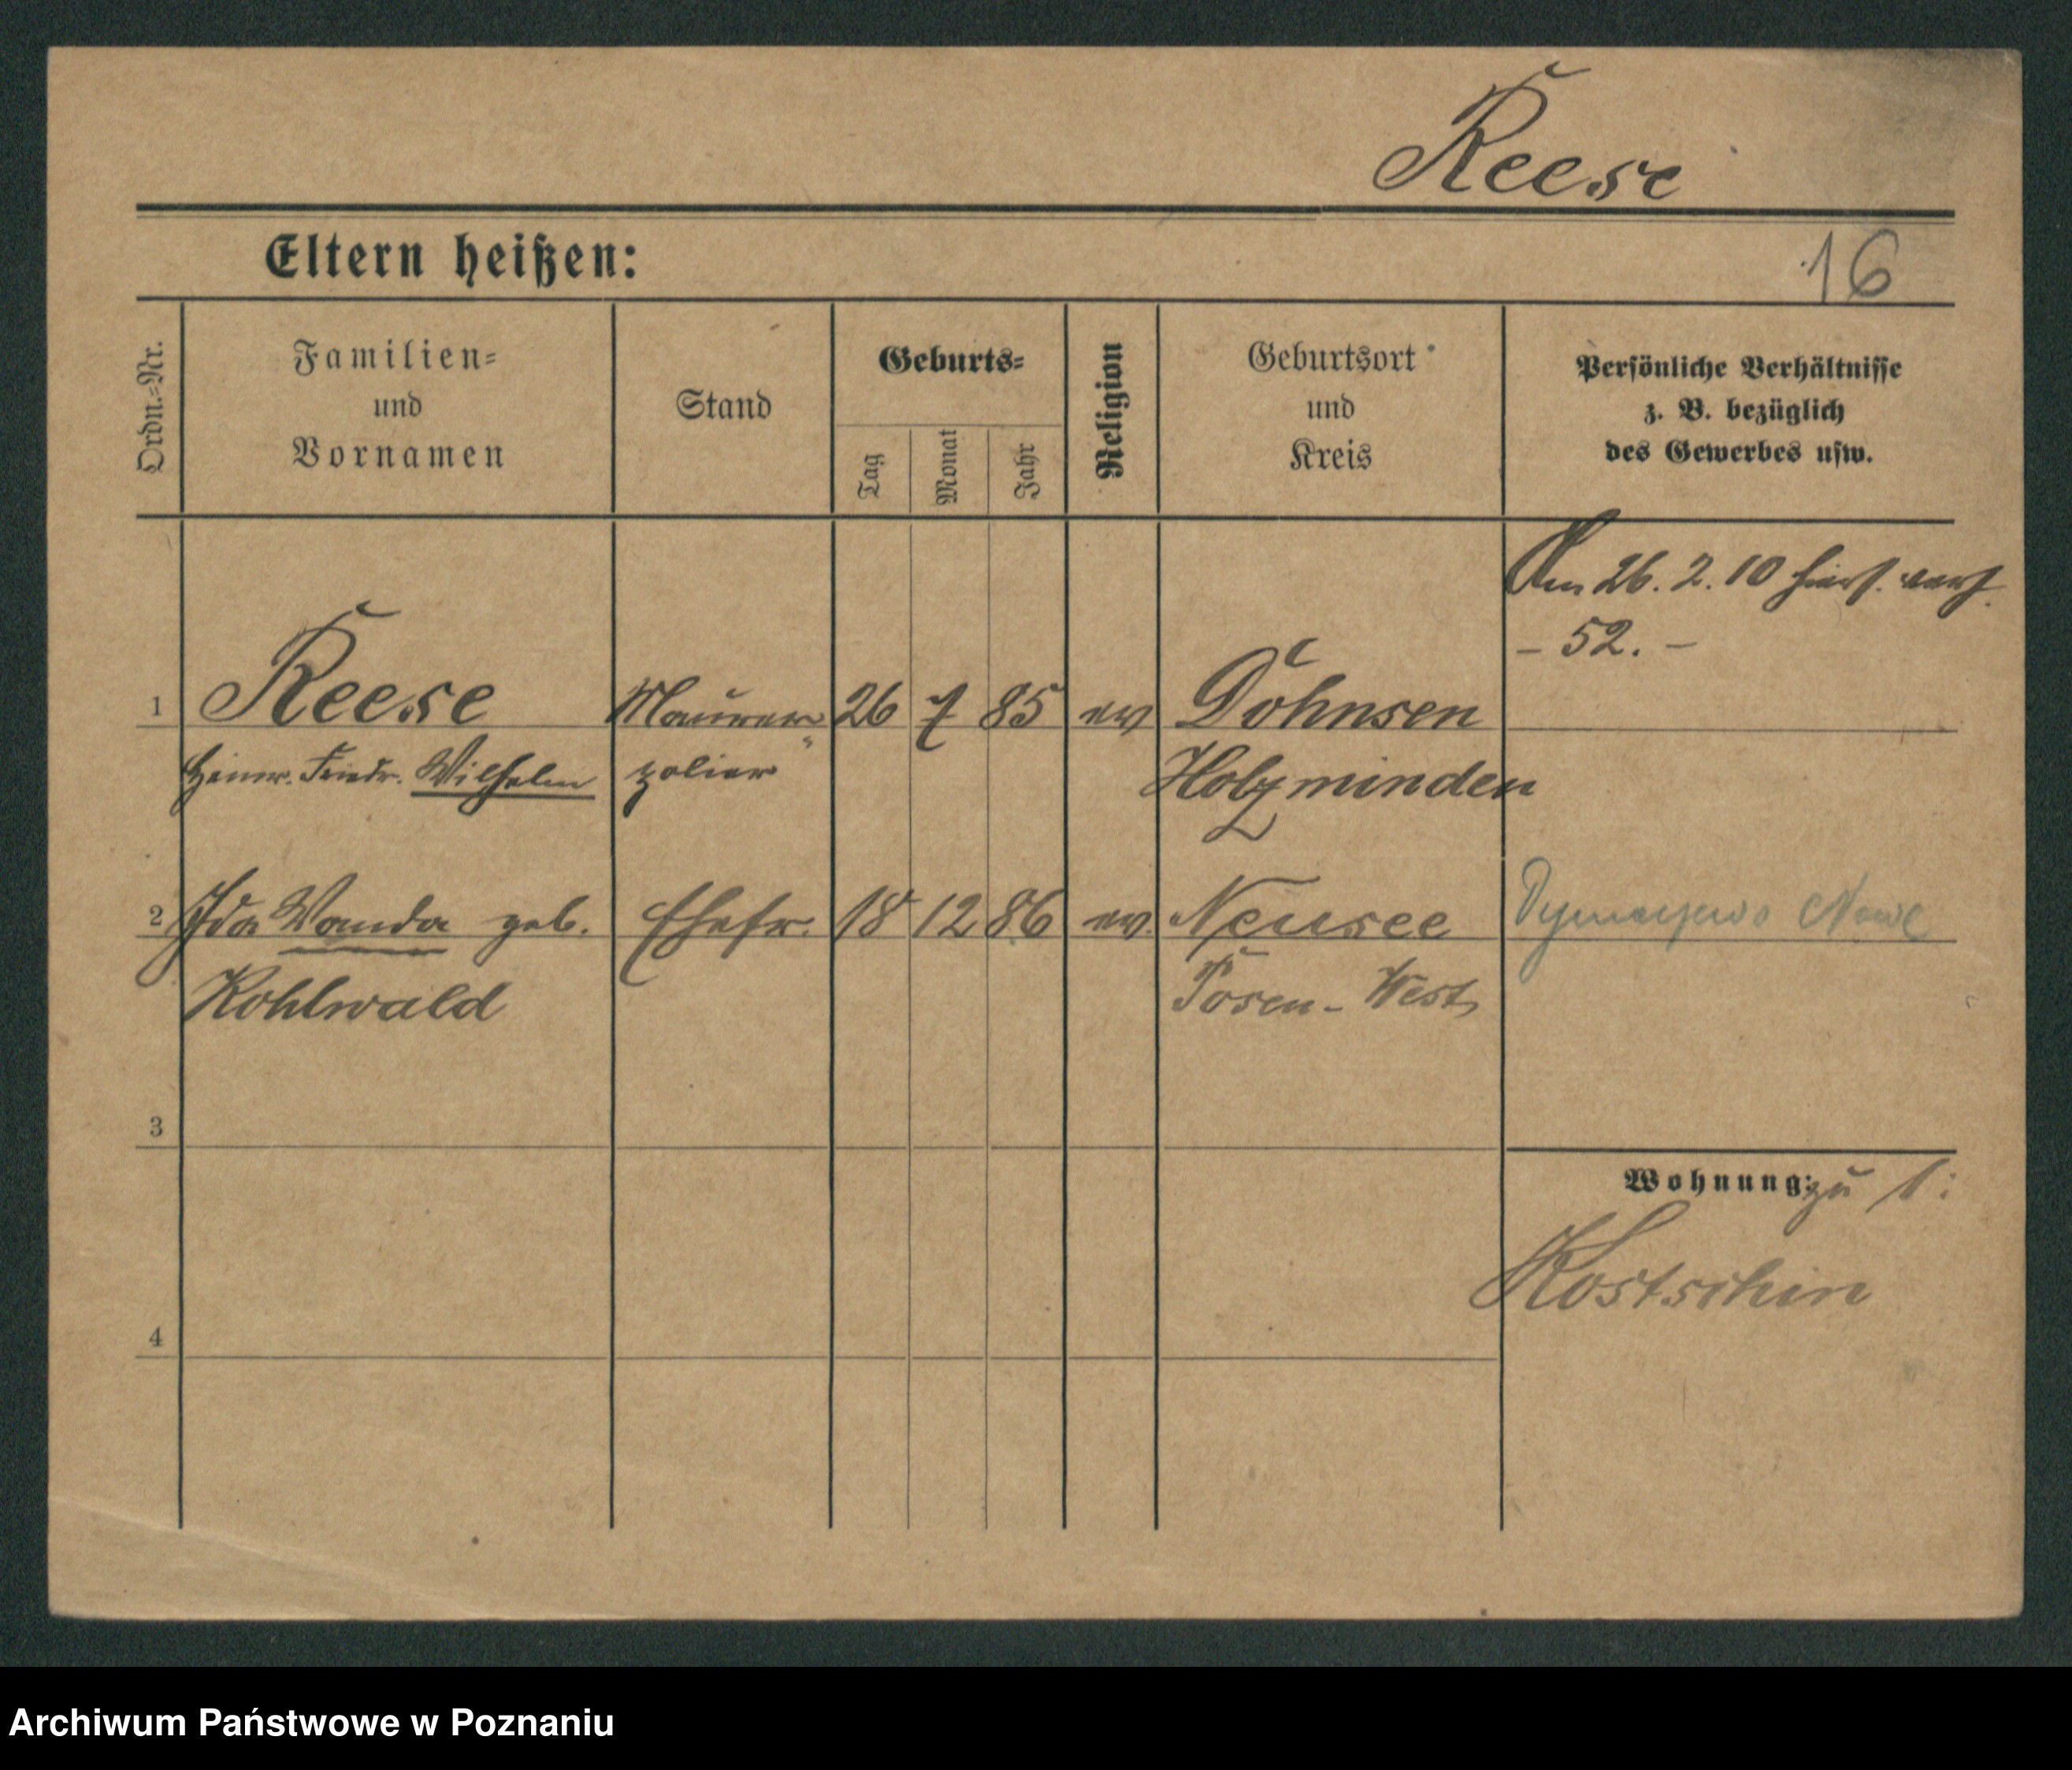 Reese
Eltern heißen:
16
Ordn.=Nr.
Familien=
und
Vornamen
Stand
Geburts=
Tag
Monat
Jahr
Religion
Geburtsort
und
Kreis
Persönliche Verhältnisse
z. B. bezüglich
des Gewerbes usw.
Am 26. 2. 10 hier
- 52. -
1 Reese Maurer= 26 7 85 ev Döhnsen
Heinr. Friedr. Wilhelm polier Holzminden
2 Ida Wanda geb. Ehefr. 18 12 86 ev. Neusee
Kohlwald Posen-West
3
Wohnung: zu 1:
Kostschin
4
Archiwum Państwowe w Poznaniu